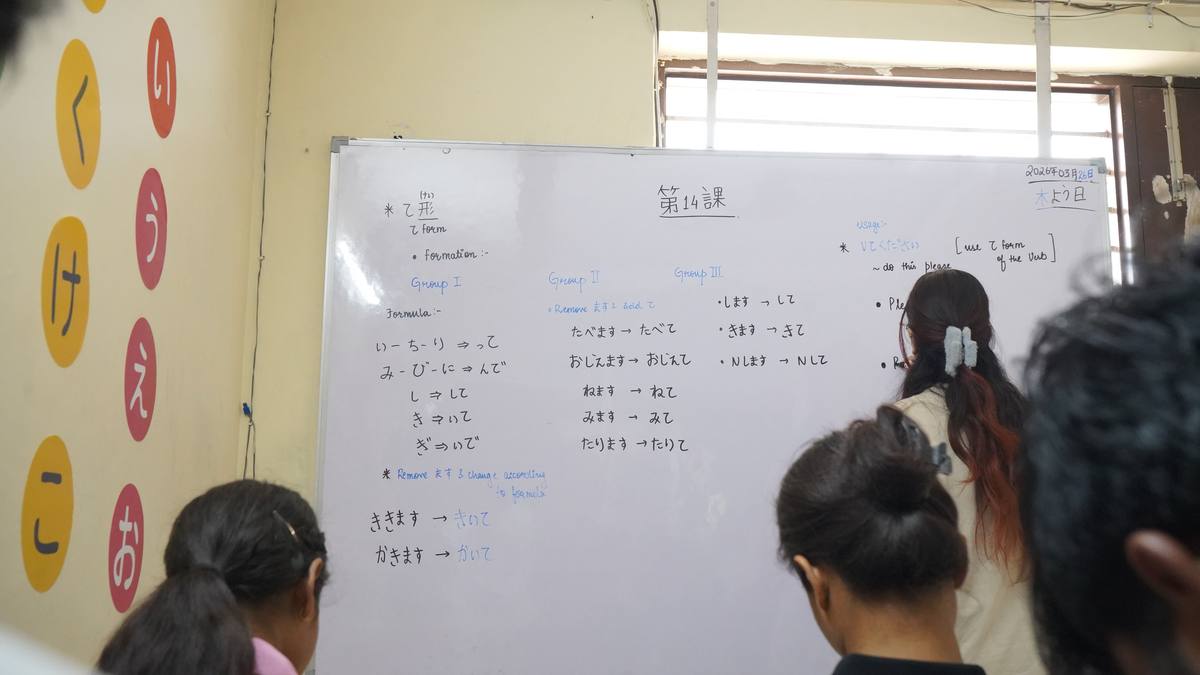 く
い
け
う
え
こ
お
2026年03月26日
木よう日
第14課
＊ て形
けい
て form
• Formation :-
Group I
Formula :-
い - ち - り ⇒ って
み - び - に ⇒ んで
し ⇒ して
き ⇒ いて
ぎ ⇒ いで
＊ Remove ます & change according
to formula
ききます → きいて
かきます → かいて
Group II
• Remove ます & add て
たべます → たべて
おしえます → おしえて
ねます → ねて
みます → みて
たります → たりて
Group III
• します → して
• きます → きて
• Nします → Nして
usage:-
＊ Vてください [use て form
of the Verb]
~ do this please